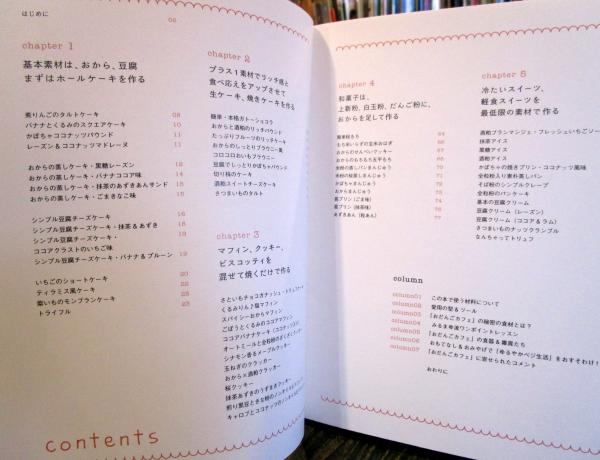 はじめに
06
chapter 1
基本素材は、おから、豆腐
まずはホールケーキを作る
煮りんごのタルトケーキ 08
バナナとくるみのスクエアケーキ 10
かぼちゃココナッツパウンド 11
レーズン&ココナッツマドレーヌ 11
おからの蒸しケーキ・黒糖レーズン 12
おからの蒸しケーキ・バナナココア味 14
おからの蒸しケーキ・抹茶のあずきあんサンド 15
おからの蒸しケーキ・ごまきなこ味 15
シンプル豆腐チーズケーキ 16
シンプル豆腐チーズケーキ・抹茶&あずき 18
シンプル豆腐チーズケーキ・ 19
ココアクラストのいちご味
シンプル豆腐チーズケーキ・バナナ&プルーン 19
いちごのショートケーキ 20
ティラミス風ケーキ 22
紫いものモンブランケーキ 22
トライフル 23
chapter 2
プラス1素材でリッチ感と
食べ応えをアップさせて
生ケーキ、焼きケーキを作る
簡単・本格ガトーショコラ
おからと酒粕のリッチパウンド
たっぷりフルーツのリッチケーキ
おからのしっとりブラウニー風
コロコロおいもブラウニー
豆腐でしっとりかぼちゃパウンド
切り株のケーキ
酒粕スイートチーズケーキ
さつまいもぷりん
chapter 3
マフィン、クッキー、
ビスコッティを
混ぜて焼くだけで作る
さといもチョコガナッシュ・トリュフケーキ
くるみりんご塩マフィン
スパイシーおからマフィン
ごぼうとくるみのココアマフィン
ココアバナナケーキ(ココナッツ入り)
オートミールと全粒粉のざくざくクッキー
シナモン香るメープルクッキー
玉ねぎのクラッカー
おから×酒粕クラッカー
桜クッキー
抹茶あずきのうずまきクッキー
contents
chapter 4
和菓子は、
上新粉、白玉粉、だんご粉に、
おからを足して作る
簡単桜もち 64
もち米いらずの玄米おはぎ 66
おからのせんべいクッキー 68
おからのもちもち五平もち 69
米粉の蒸しパンまんじゅう 70
米粉の桜蒸しまんじゅう 71
かぼちゃまんじゅう
おからまんじゅう
葛プリン(ごま味) 74
葛プリン(抹茶味) 76
あずきあん(粒あん) 77
chapter 5
冷たいスイーツ、
軽食スイーツを
最低限の素材で作る
酒粕ブランマンジェ・フレッシュいちごソー
抹茶アイス
黒糖アイス
酒粕アイス
かぼちゃの焼きプリン・ココナッツ風味
全粒粉入り素朴蒸しパン
そば粉のシンプルクレープ
全粒粉のパンケーキ
基本の豆腐クリーム
豆腐クリーム(レーズン)
豆腐クリーム(ココア&ラム)
さつまいものナッツクランブル
なんちゃってトリュフ
column
column01 この本で使う材料について
column02 愛用の型&ツール
column03 「おだんごカフェ」の秘密の食材とは?
column04 みるま母流ワンポイントレッスン
column05 「おだんごカフェ」の食器&雑貨たち
column06 おもてなし&おみやげで「ゆるやかベジ生活」をおすそわけ!
column07 「おだんごカフェ」に寄せられたコメント
おわりに